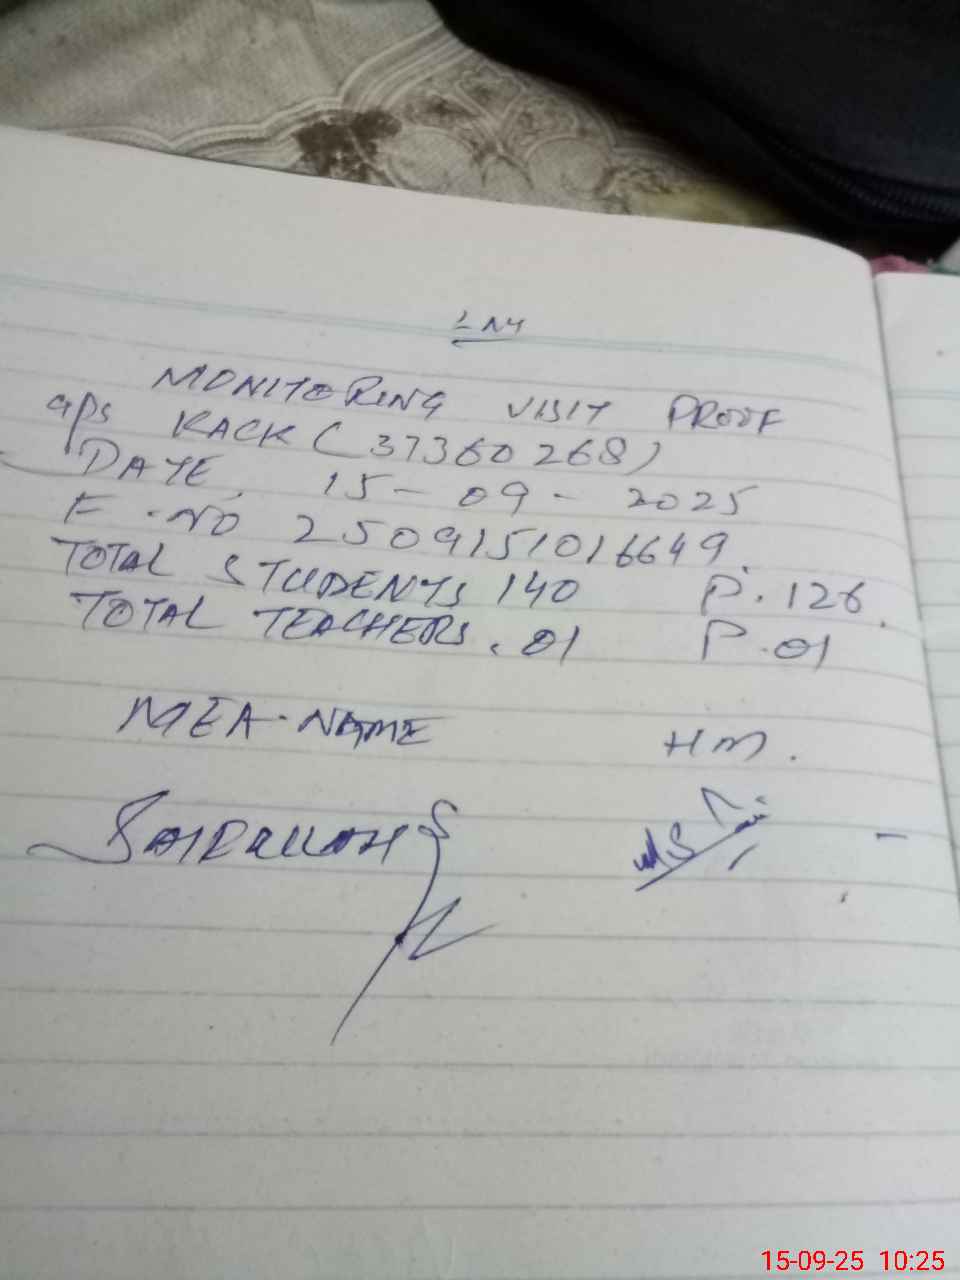 MONITORING VISIT PROOF
GPS KACK (37360268)
DATE. 15-09-2025
F.NO 2509151016649.
TOTAL STUDENTS 140 P.126.
TOTAL TEACHERS.01 P.01
MEA.NAME HM.
15-09-25 10:25